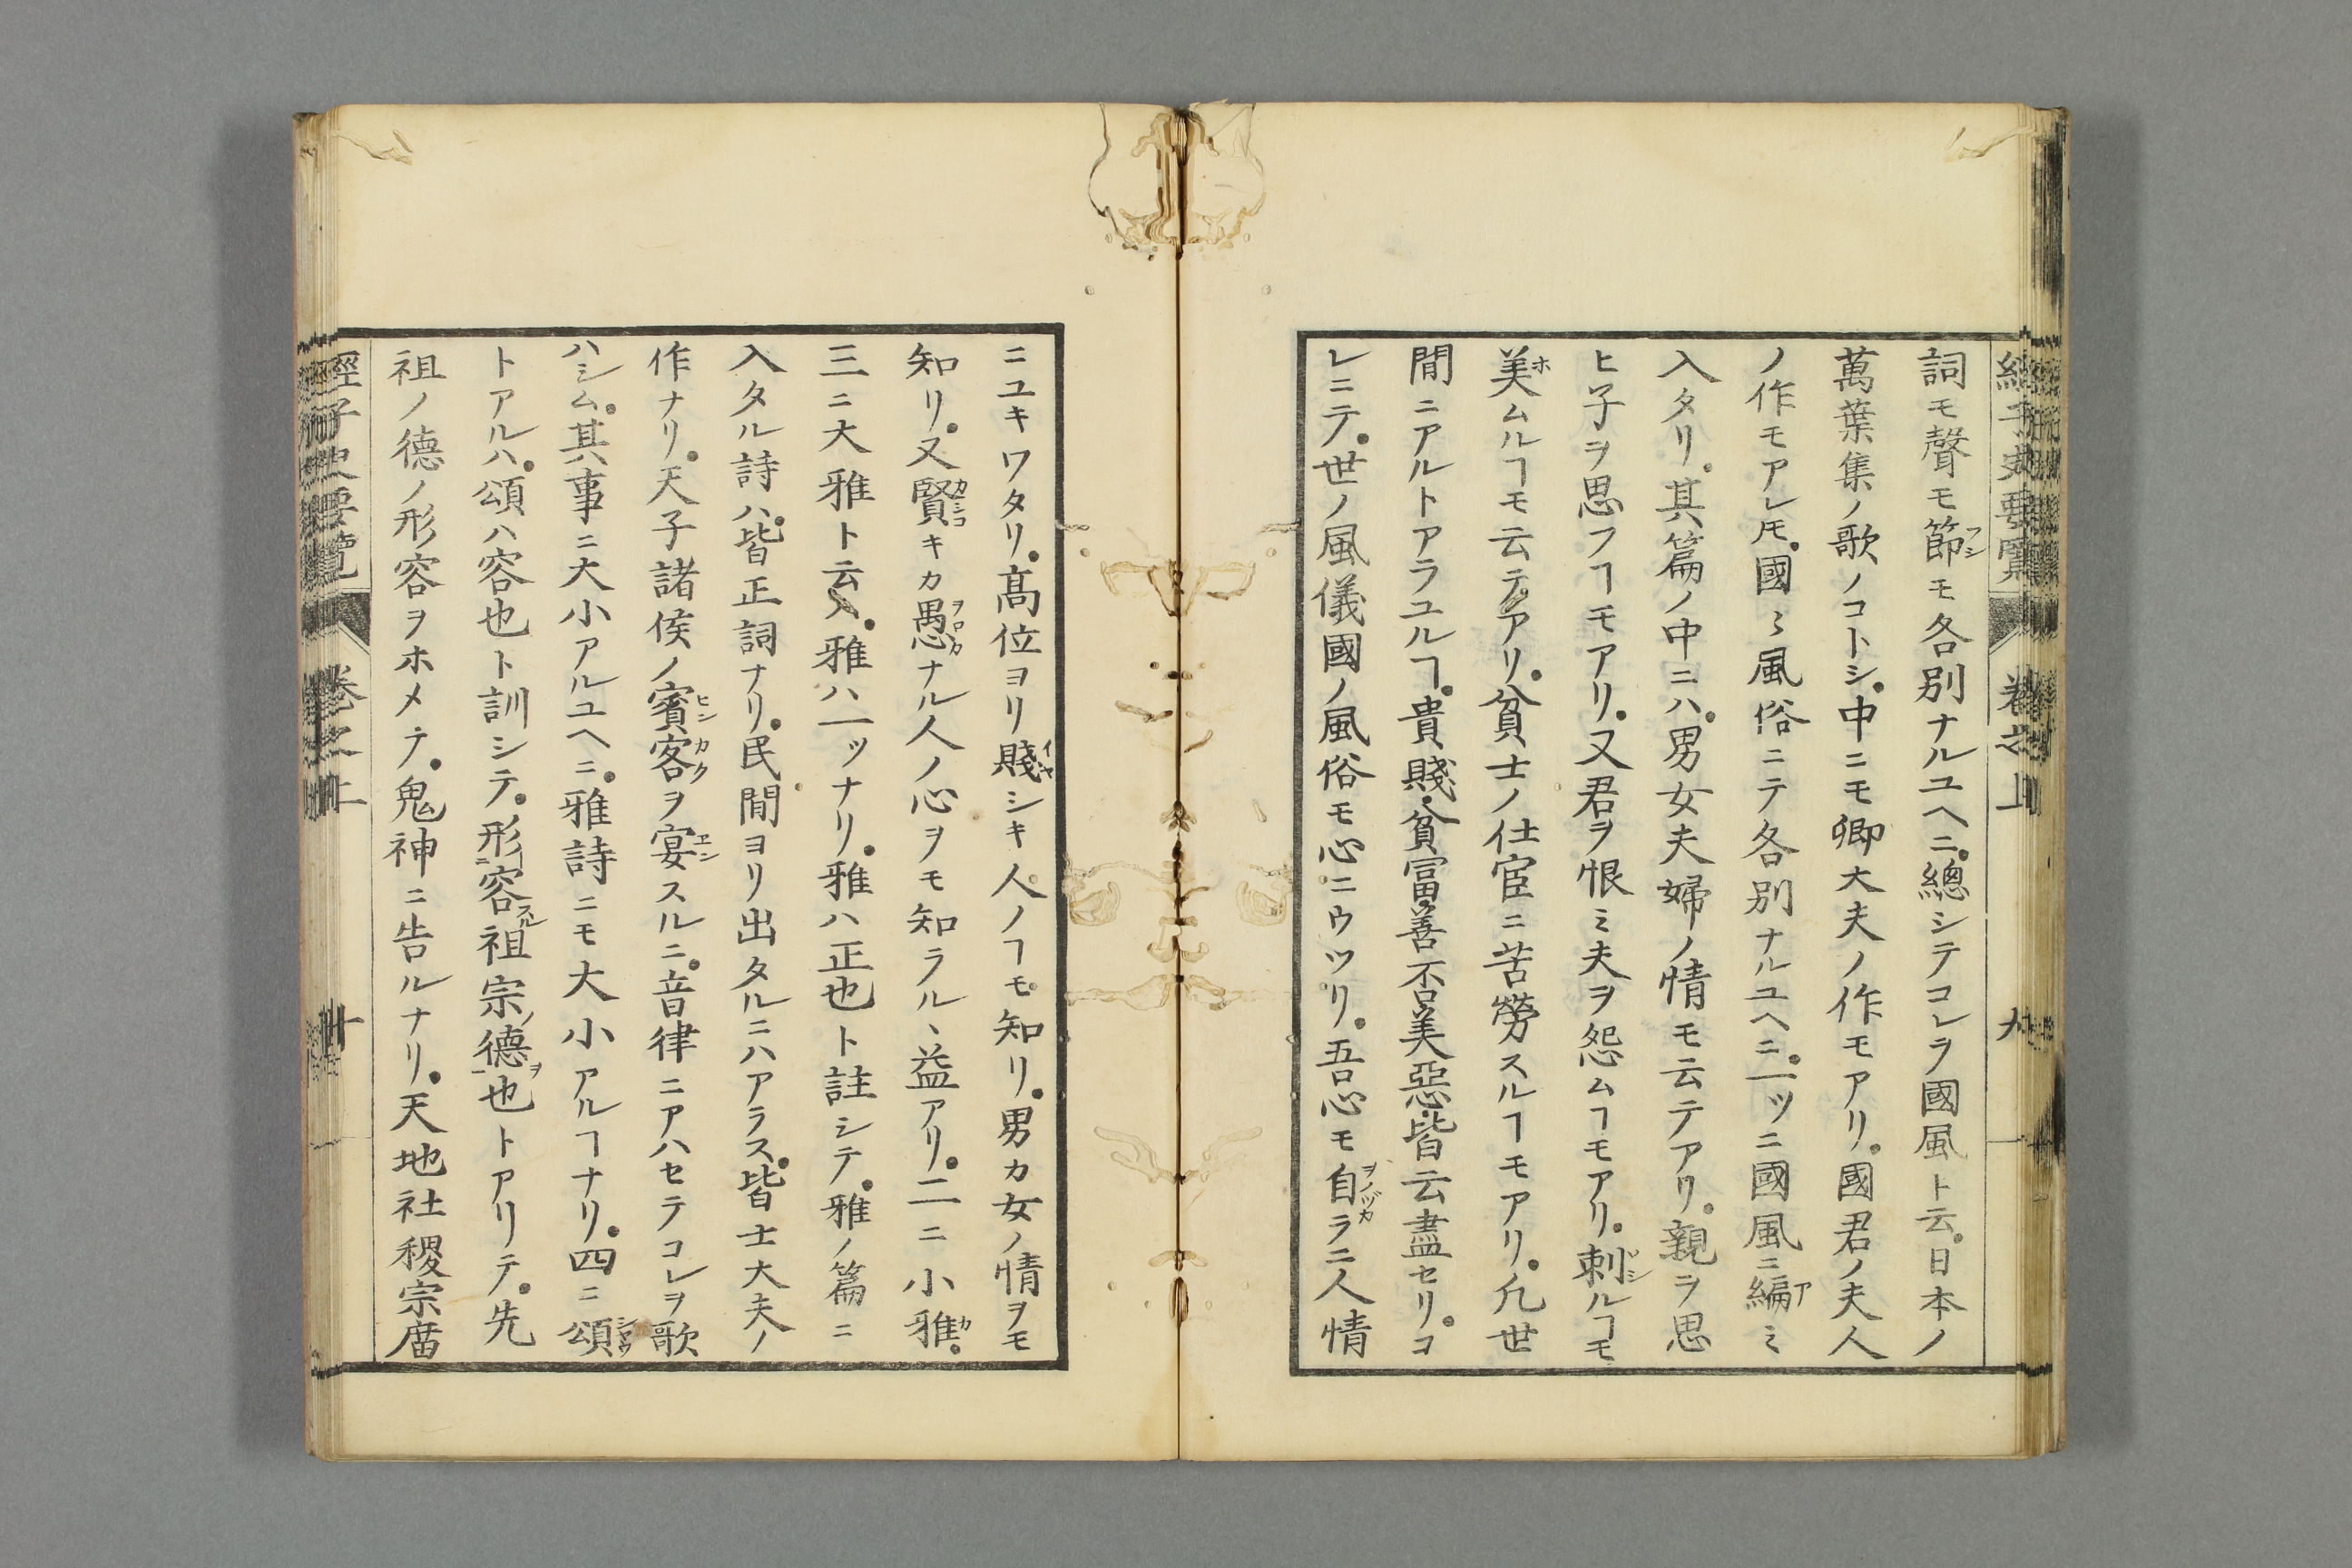 經子史要覽 卷之上 九
詞モ聲モ節フシモ各別ナルユヘニ。總シテコレラ國風ト云。日本ノ
萬葉集ノ歌ノコトシ。中ニモ卿大夫ノ作モアリ。國君ノ夫人
ノ作モアレ𪜈。國〻風俗ニテ各別ナルユヘニ。一ツニ國風ニ編アミ
入タリ。其篇ノ中ニハ。男女夫婦ノ情モ云テアリ。親ヲ思
ヒ子ヲ思フヿモアリ。又君ヲ恨ミ夫ヲ怨ムヿモアリ。刺ソシルヿモ
美ホムルヿモ云テアリ。貧士ノ仕宦ニ苦勞スルヿモアリ。凡世
間ニアルトアラユルヿ。貴賤貧冨善否美惡皆云盡セリ。コ
レニテ。世ノ風儀國ノ風俗モ心ニウツリ。吾心モ自ヲノヅカラニ人情
ニユキワタリ。髙位ヨリ賤イヤシキ人ノヿモ知リ。男カ女ノ情ヲモ
知リ。又賢カシコキカ愚ヲロカナル人ノ心ヲモ知ラル、益アリ。二ニ小雅カ。
三ニ大雅ト云ヘ。雅ハ一ツナリ。雅ハ正也ト註シテ。雅ノ篇ニ
入タル詩ハ。皆正詞ナリ。民間ヨリ出タルニハアラス。皆士大夫ノ
作ナリ。天子諸侯ノ賓ヒン客カクヲ宴エンスルニ。音律ニアハセテコレヲ歌
ハシム。其事ニ大小アルユヘニ。雅詩ニモ大小アルヿナリ。四ニ頌シヨウ
トアルハ。頌ハ容也ト訓シテ。形容スル祖宗ノ德ヲ也トアリテ。先
祖ノ德ノ形容ヲホメテ。鬼神ニ告ルナリ。天地社稷宗庿
經子史要覽 卷之上 十